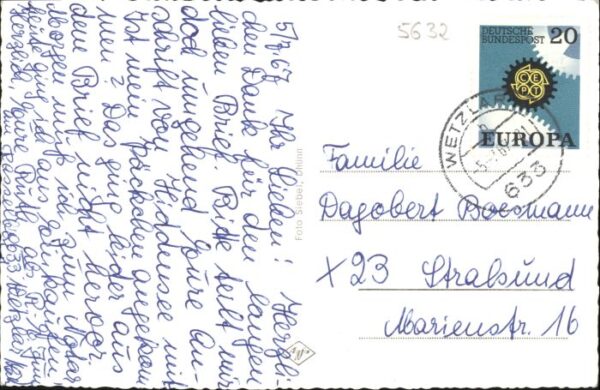 5/7.67 Ihr Lieben! Herzli-
chen Dank für den langen
lieben Brief. Bitte teilt mir
doch umgehend Eure An-
schrift von Hiddensee mit
Ist mein Päckchen angekom-
men? Das ging leider aus
dem Brief nicht hervor.
Morgen muß ich zum Notar
Herzlich Eure Ruth
Foto Siebel, Dhünn
5632
DEUTSCHE
BUNDESPOST 20
CEPT
EUROPA
WETZLAR
633
Familie
Dagobert Boesmann
X23 Stralsund
Marienstr. 16